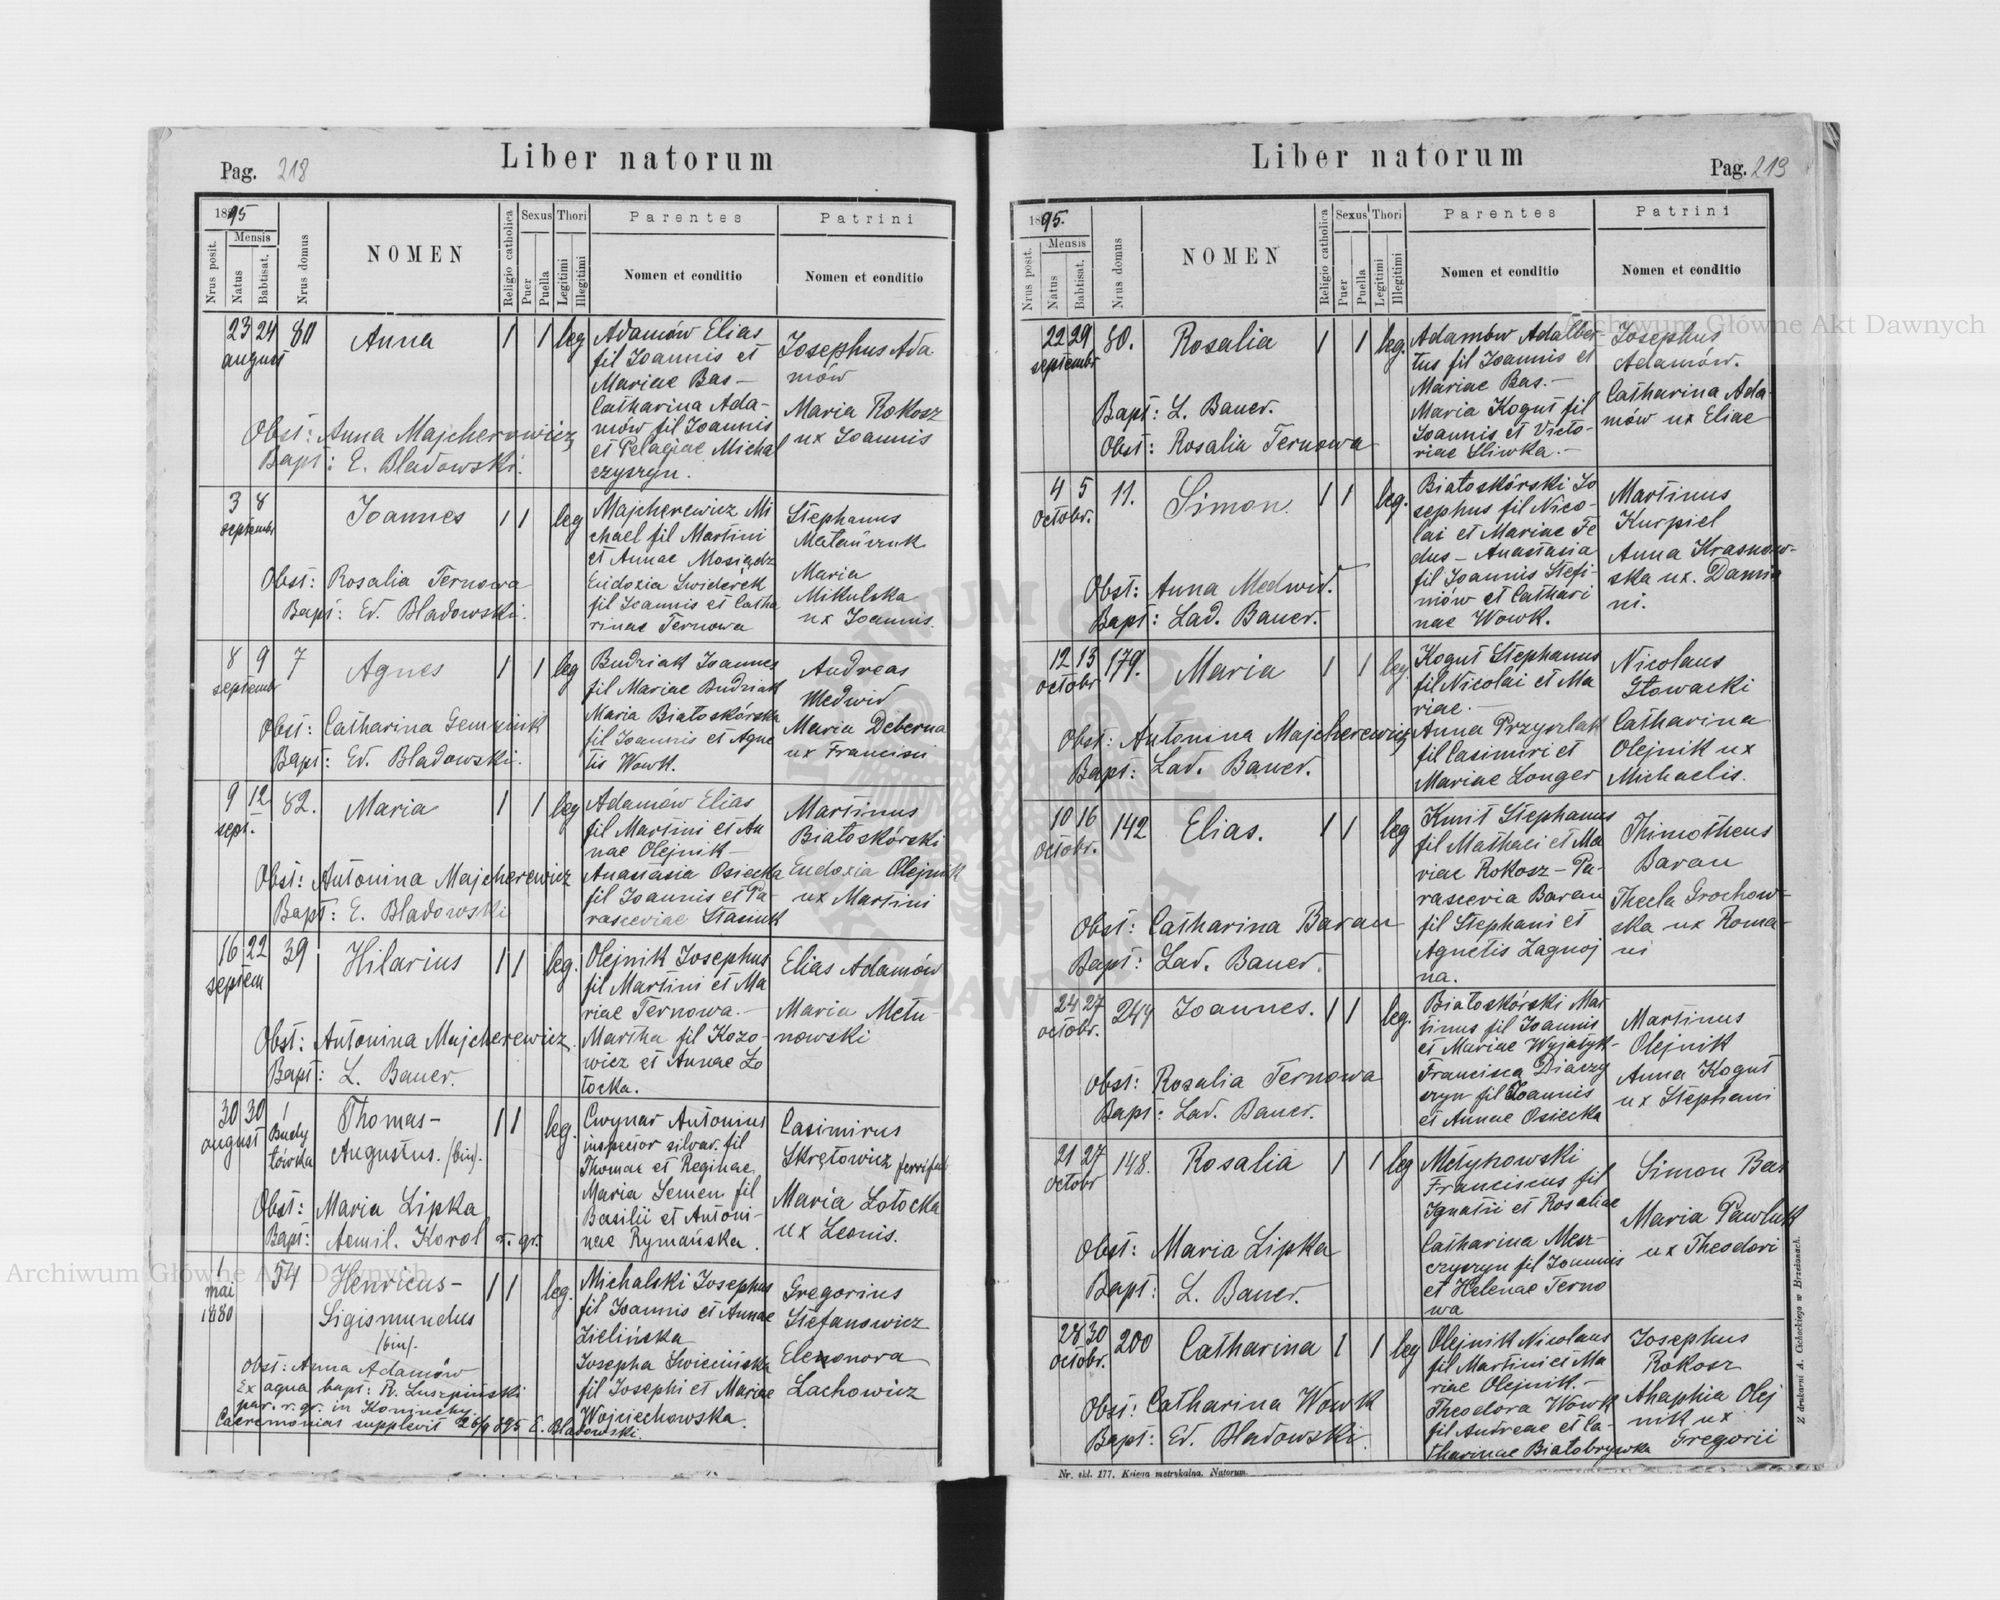 Liber natorum
Pag. 218
1895
Nrus posit.
Mensis
Natus
Babtisat.
Nrus domus
NOMEN
Religio catholica
Sexus
Puer
Puella
Thori
Legitimi
Illegitimi
Parentes
Nomen et conditio
Patrini
Nomen et conditio
23 24 80 Anna 1 1 leg
august
Adamów Elias
fil Joannis et
Mariae Bas –
Catharina Ada-
mów fil Joannis
et Pelagiae Michal
czyszyn.
Josephus Ada
mów
Maria Rokosz
ux Joannis
Obst: Anna Majcherowicz
Bapt: E. Bladowski.
3 8 Joannes 1 1 leg
septembr
Majcherewicz Mi
chael fil Martini
et Annae Mosiądz
Eudoxia Swiderek
fil Joannis et Catha
rinae Ternowa
Stephanus
Maria
Mikulska
ux Joannis.
Obst: Rosalia Ternowa
Bapt: Ed. Bladowski.
8 9 7 Agnes 1 1 leg
septembr
Budziak Joannes
fil Mariae Budziak
Maria Białoskórska
fil Joannis et Agne
tis Wowk.
Andreas
Medwid
Maria Deberna
ux Francisci
Obst: Catharina
Bapt: Ed. Bladowski.
9 12 82. Maria 1 1 leg
sept.
Adamów Elias
fil Martini et An
nae Olejnik –
Anastasia Osiecka
fil Joannis et Pa-
rasceviae Stasiuk
Martinus
Białoskórski
Eudoxia Olejnik
ux Martini
Obst: Antonina Majcherewicz
Bapt: E. Bladowski
16 22 39 Hilarius 1 1 leg.
septem
Olejnik Josephus
fil Martini et Ma
riae Ternowa. –
Martha fil Kozo-
wicz et Annae Zo
tocka.
Elias Adamów
Maria Metu-
nowski
Obst: Antonina Majcherewicz.
Bapt: L. Bauer.
30 30 1 Thomas- 1 1 leg.
august
Budy
łówka
Augustus. /bin/.
Cwynar Antonius
inspector silvar. fil
Thomae et Reginae
Maria Semen fil
Basilii et Antoni-
nae Rymańska.
Casimirus
Skrętowicz
Maria Zotocka
ux Leonis.
Obst: Maria Lipka
Bapt: Aemil. Korol r. gr.
1 54 Henricus- 1 1 leg.
mai
1880
Sigismundus
/bin/.
Michalski Josephus
fil Joannis et Annae
Zielińska
Josepha Swicińska
fil Josephi et Mariae
Wojciechowska.
Gregorius
Stefanowicz
Eleonora
Lachowicz
Obst: Anna Adamów
Ex aqua bapt: R. Luszpiński
par. r. gr. in Koniuchy.
Caeremonias supplevit 26/9 895 E. Bladowski.
Liber natorum
Pag. 219
1895.
Nrus posit.
Mensis
Natus
Babtisat.
Nrus domus
NOMEN
Religio catholica
Sexus
Puer
Puella
Thori
Legitimi
Illegitimi
Parentes
Nomen et conditio
Patrini
Nomen et conditio
22 29 80. Rosalia 1 1 leg.
septembr
Adamów Adalber-
tus fil Joannis et
Mariae Bas. –
Maria Kogut fil
Joannis et Victo-
riae Sliwka. –
Josephus
Adamów.
Catharina Ada
mów ux Eliae
Bapt: L. Bauer.
Obst: Rosalia Ternowa
4 5 11. Simon. 1 1 leg.
Octobr.
Białoskórski Jo
sephus fil Nico-
lai et Mariae Fe
dus – Anastasia
fil Joannis Stefi-
mów et Cathari
nae Wowk.
Martinus
Kurpiel
Anna Krasnow-
ska ux. Damia
ni.
Obst: Anna Medwid.
Bapt: Lad. Bauer.
12 13 179. Maria 1 1 leg.
octobr
Kogut Stephanus
fil Nicolai et Ma
riae. –
Anna Przyszlak
fil Casimiri et
Mariae Longer
Nicolaus
Głowacki
Catharina
Olejnik ux
Michaelis.
Obst: Antonina Majcherewicz
Bapt: Lad. Bauer.
10 16 142 Elias. 1 1 leg
octobr.
Kmit Stephanus
fil Mathaei et Ma
riae Rokosz – Pa-
rascevia Baran
fil Stephani et
Agnetis Zagnoj
na.
Thimotheus
Baran
Thecla Grochow-
ska ux Roma-
ni
Obst: Catharina Baran
Bapt: Lad. Bauer.
24 27 244 Joannes. 1 1 leg.
octobr.
Białoskórski Mar
tinus fil Joannis
et Mariae
Francisca Diaczy
szyn fil Joannis
et Annae Osiecka
Martinus
Olejnik
Anna Kogut
ux Stephani
Obst: Rosalia Ternowa
Bapt: Lad. Bauer.
21 27 148. Rosalia 1 1 leg
octobr
Metynowski
Franciscus fil
Ignatii et Rosaliae
Catharina Mesz-
czyszyn fil Joannis
et Helenae Terno
wa
Simon Bas
Maria Pawluk
ux Theodori
Obst: Maria Lipka
Bapt: L. Bauer.
28 30 200 Catharina 1 1 leg
octobr.
Olejnik Nicolaus
fil Martini et Ma
riae Olejnik. –
Theodora Wowk
fil Andreae et Ca-
tharinae Białobrywka
Josephus
Rokosz
Ahaphia Olej
nik ux
Gregorii
Obst: Catharina Wowk
Bapt: Ed. Bladowski.
Nr. skl. 177. Księga metrykalna. Natorum.
Z drukarni A. Cichockiego w Brzeżanach.
Archiwum Główne Akt Dawnych
Archiwum Główne Akt Dawnych